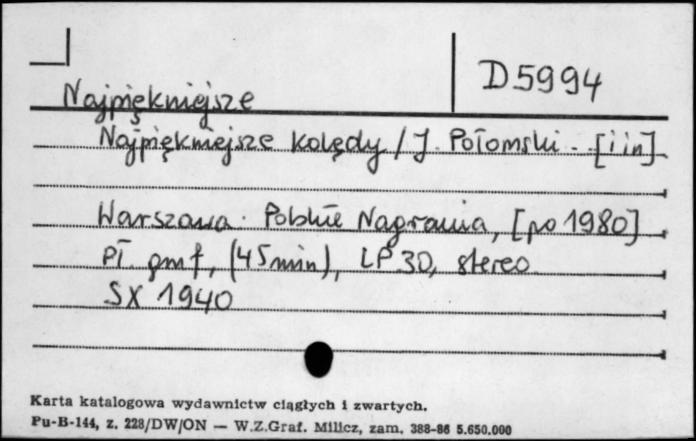 D5994
Najpiękniejsze
Najpiękniejsze kolędy / J. Połomski .. [i in]
Warszawa. Polskie Nagrania, [po 1980]
Pł. gmf, (45min), LP 30, stereo
SX 1940
Karta katalogowa wydawnictw ciągłych i zwartych.
Pu-B-144, z. 228/DW/ON — W.Z.Graf. Milicz, zam. 388-86 5.650.000